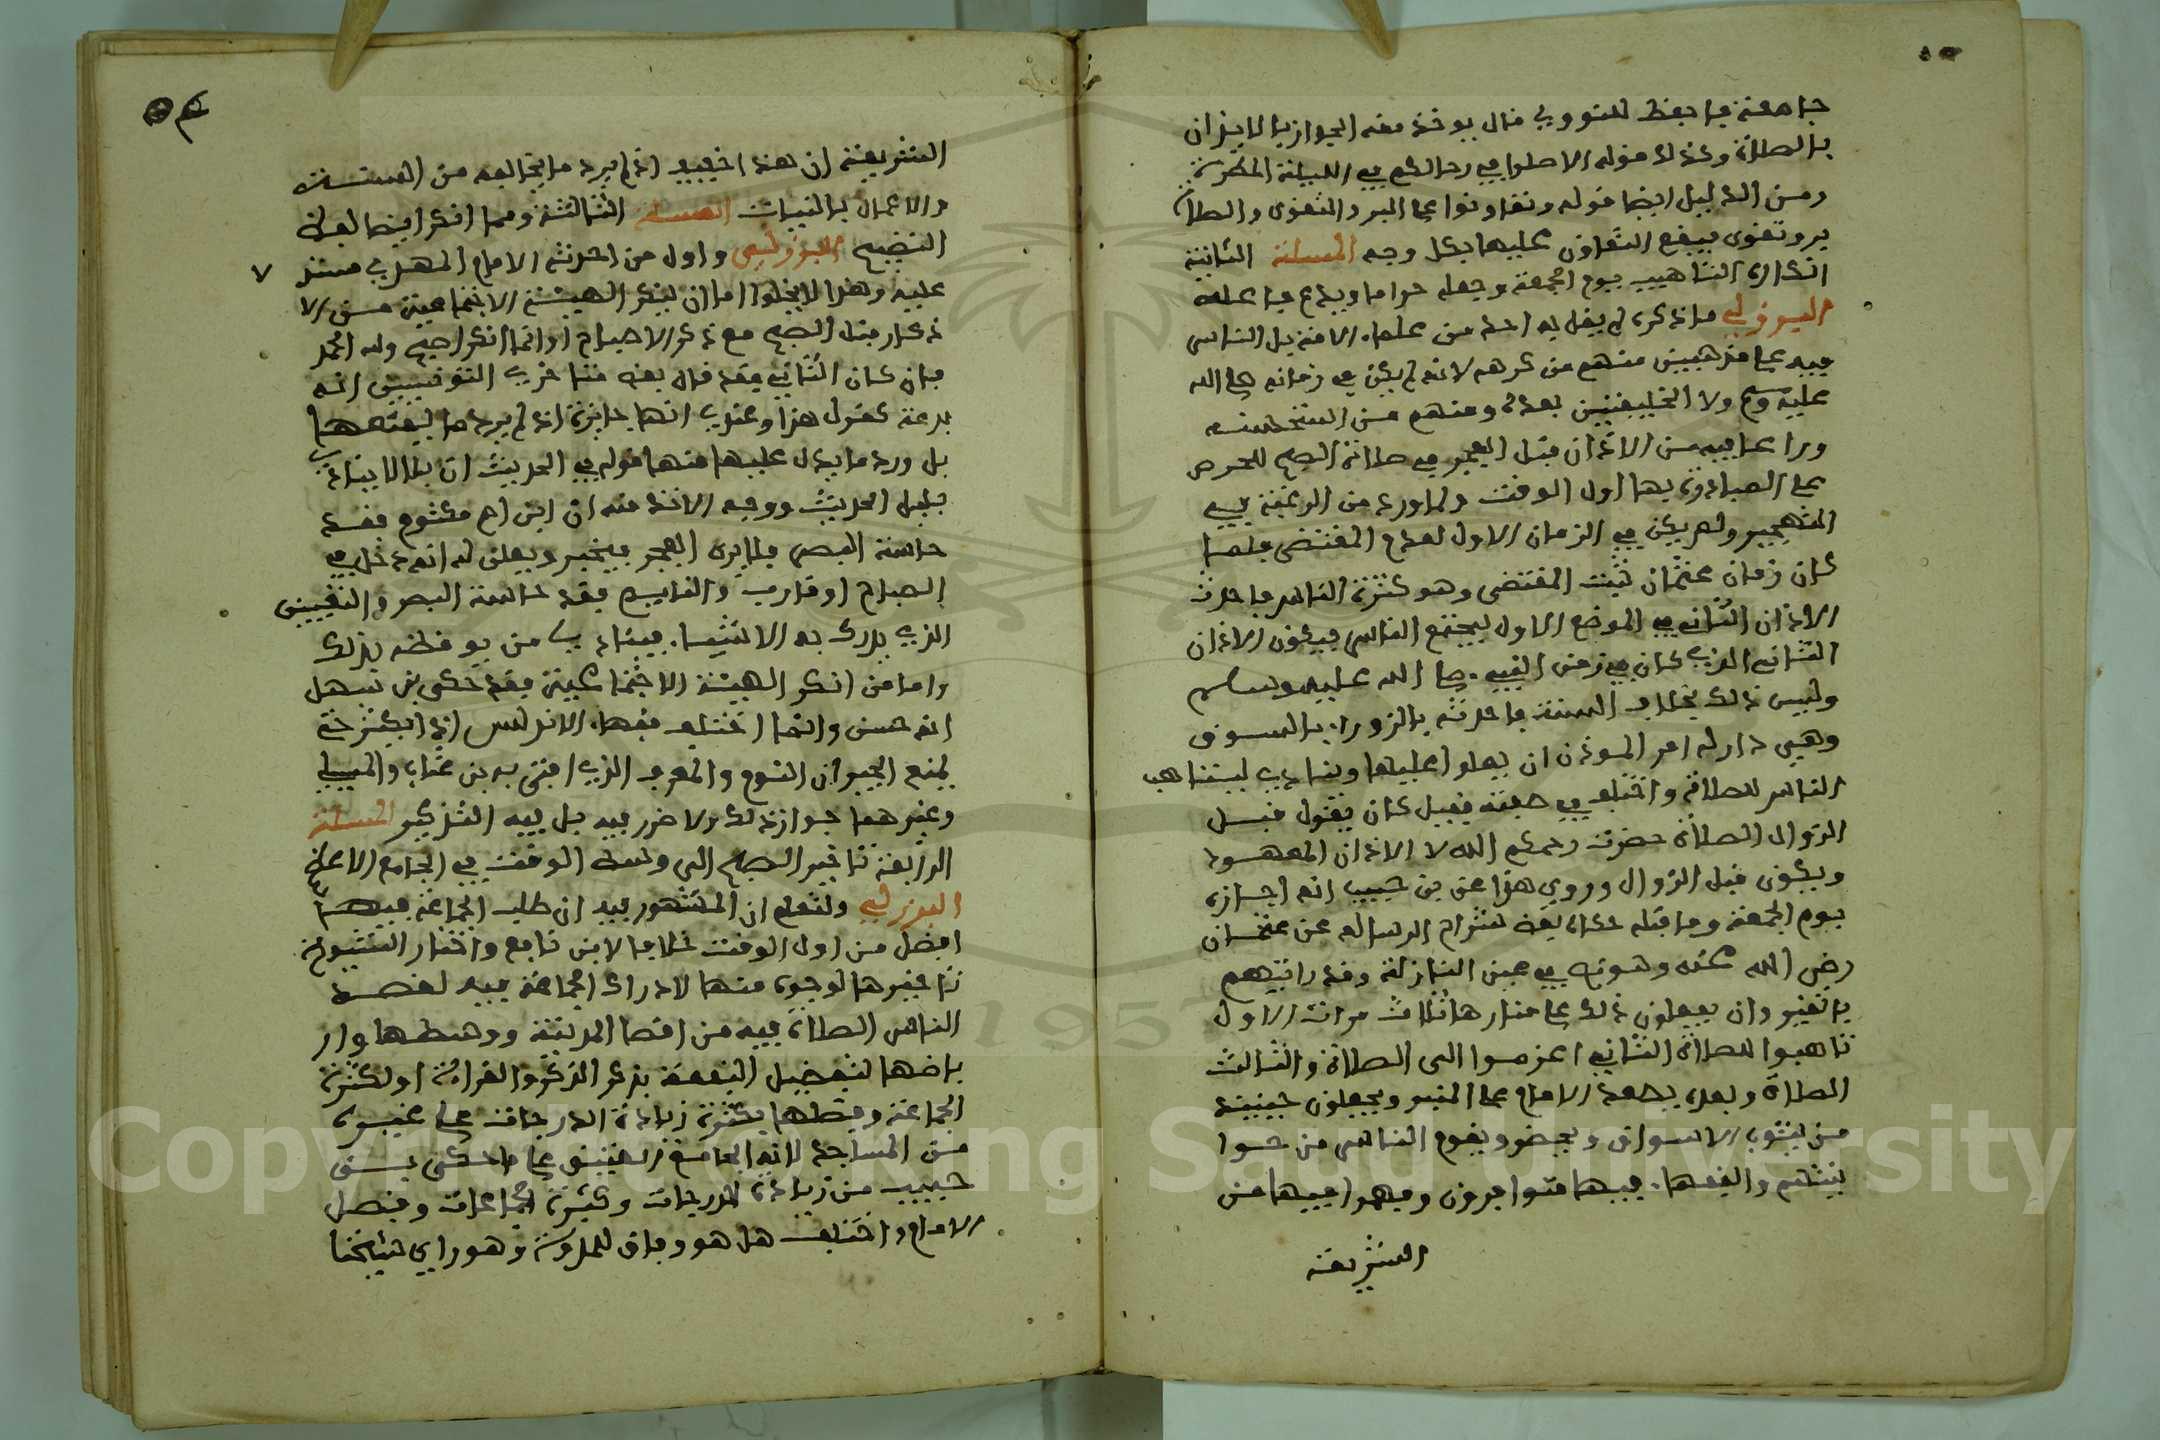 جامعة فاحفظ للنووي قال يوخذ منه الجواز بالايذان
بالصلاة وكذلك قوله الا صلوا في رحالكم في الليلة المطيرة
ومن الدليل ايضا قوله وتعاونوا على البر والتقوى والصلاة
بر وتقوى فيقع التعاون عليها بكل وجه المسلة الثانية
انكاره التاهيب يوم الجمعة وجعله حراما وبدع فاعله
البرزلي ما ذكره لم يقل به احد من علماء الامة بل الناس
فيه على مذهبين منهم من كرهه لانه لم يكن في زمانه صلى الله
عليه وسلم ولا الخليفتين بعده ومنهم من استحسنه
وراعا فيه من الاذان قبل الفجر في صلاة الصبح للحرص
على المبادرة بها اول الوقت ولما ورد من الرغبة في
التهجير ولم يكن في الزمان الاول لعدم المقتضى فلما
كان زمان عثمان ثبت المقتضى وهو كثرة الناس فاحدث
الاذان الثاني في الموضع الاول ليجتمع الناس فيكون الاذان
الثاني الذي كان في زمن النبي صلى الله عليه وسلم
وليس ذلك بخلاف السنة فاحدثه بالزوراء بالسوق
وهي دار له امر الموذن ان يعلوا عليها وينادي ليتناهب
الناس للصلاة واختلف في صفته فقيل كان يقول قبل
الزوال الصلاة حضرت رحمكم الله لا الاذان المعهود
ويكون قبل الزوال وروي هذا عن بن حبيب انه اجازه
يوم الجمعة وما قبله حكاه بعض شراح الرسالة عن عثمان
رضي الله عنه وهو في عين النازلة وقد رايتهم
بالقيروان يفعلون ذلك على منارها ثلاث مرات الاول
تاهبوا للصلاة الثاني اعزموا الى الصلاة والثالث
الصلاة وبعده يصعد الامام على المنبر ويجعلون حينيذ
من ينتوب الاسواق ويحضر ويقوم الناس من حوا
نيتهم والفقهاء فيها متوافرون وفهموا فيها من
الشريعة
الشريعة ان هذا خفيف اذ لم يرد ما يخالفه من السنة
والاعمال بالنيات المسلة الثالثة ومما انكر ايضا لعلى
التصبيح البرزلي واول من احدثه الامام المهدي
عليه وهذا لا يخلوا اما ان ينكر الهيئة الاجتماعية من الا
ذكار قبل الصبح مع ذكر الاصباح او انما انكر اصبح ولله الحمد
فان كان الثاني فقد قال بعض متاخري التونسيين انه
بدعة كقول هذا وعندي انها جايزة اذ لم يرد ما يمنعها
بل ورد ما يدل عليها منها قوله في الحديث ان بلالا ينادي
بليل الحديث ووجه الاخذ منه ان ابن ام مكتوم فقد
حاسة البصر فلا يرى الفجر فيخبر ويعلن له انه دخل في
الصباح او قارب والنايم فقد حاسة البصر والتقييس
الذي يدرك به الاشياء فينادي من يوقظه بذلك
واما من انكر الهيئة الاجتماعية فقد حكى بن سهل
انه حسن وانما اختلف فقهاء الاندلس اذا يكثر حتى
يمنع الجيران النوم والمعروف الذي افتى به بن عتاب والمسيلي
وغيرهما جواز ذلك ولا ضرر فيه بل فيه التذكير المسلة
الرابعة تاخير الصبح الى وسط الوقت في الجامع الاعلى
البرزلي ولتعلم ان المشهور فيه ان طلب الجماعة فيها
افضل من اول الوقت خلافا لابن نافع واختار الشيوخ
تاخيرها لوجوه منها لادراك الجماعة فيه لقصد
الناس الصلاة فيه من اقصا المدينة ووسطها وار
باضها لتفضيل البقعة بذكر الذكر والقراءة او لكثرة
الجماعة وفضلها بكثرة زيادة الدرجات على غيره
من المساجد لانه الجامع على ما حكى بن
حبيب من زيادة الدرجات وكثرة الجماعات وفضل
الامام واختلف هل هو وفاق للمدونة وهو راي شيخنا